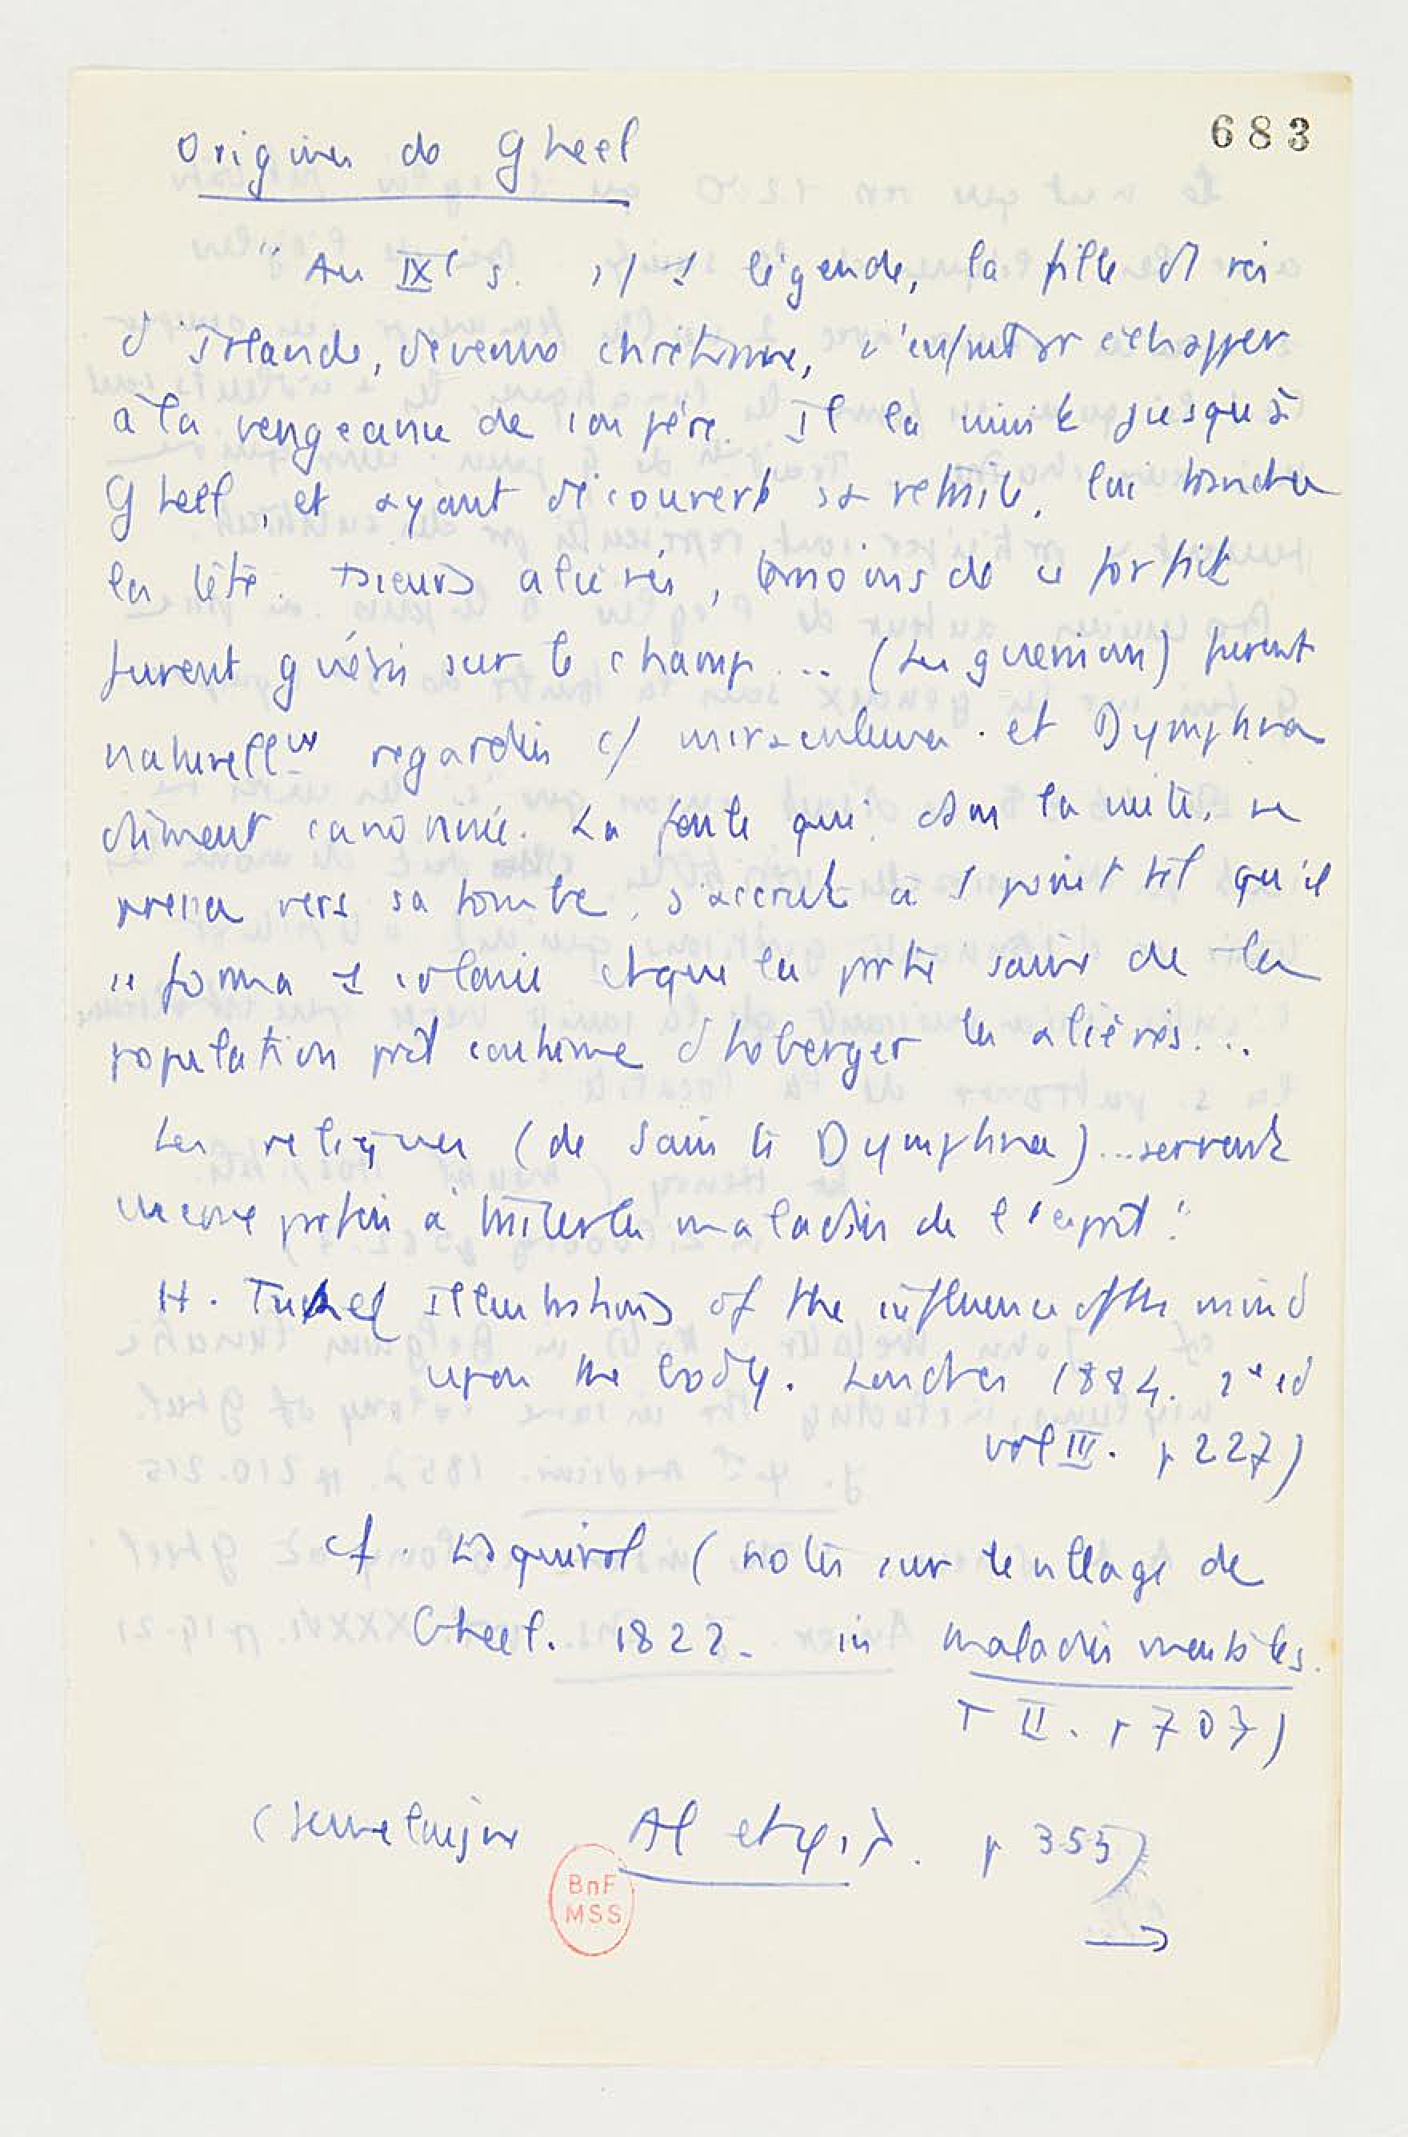 683
Origines de Gheel
" Au IXe s. légende, la fille d roi
d'Irlande, devenue chrétienne, s'enfuit pr échapper
à la vengeance de son père. Il la suivit jusqu'à
Gheel, et ayant découvert sa retraite, lui trancha
la tête. aliénés, témoins de ce forfait
furent guéris sur le champ ... (Les guérisons) furent
naturellnt regardées c/ miraculeuses. et Dymphna
dûment canonisée. La foule qui, dans la suite, se
pressa vers sa tombe, s'accrut à 1 point tel qu'il
se forma 1 colonie et que la partie saine de la
population prit coutume d'héberger les aliénés...
Les reliques (de Sainte Dymphna) ... servent
encore parfois à traiter les maladies de l'esprit."
H. Illustrations of the influence of the mind
upon the body. Londres 1884. 2e ed
vol III. p 227)
cf. Esquirol (notes sur le village de
Gheel. 1822. in Maladies mentales.
T II. p 707)
p 355)
→
BnF
MSS